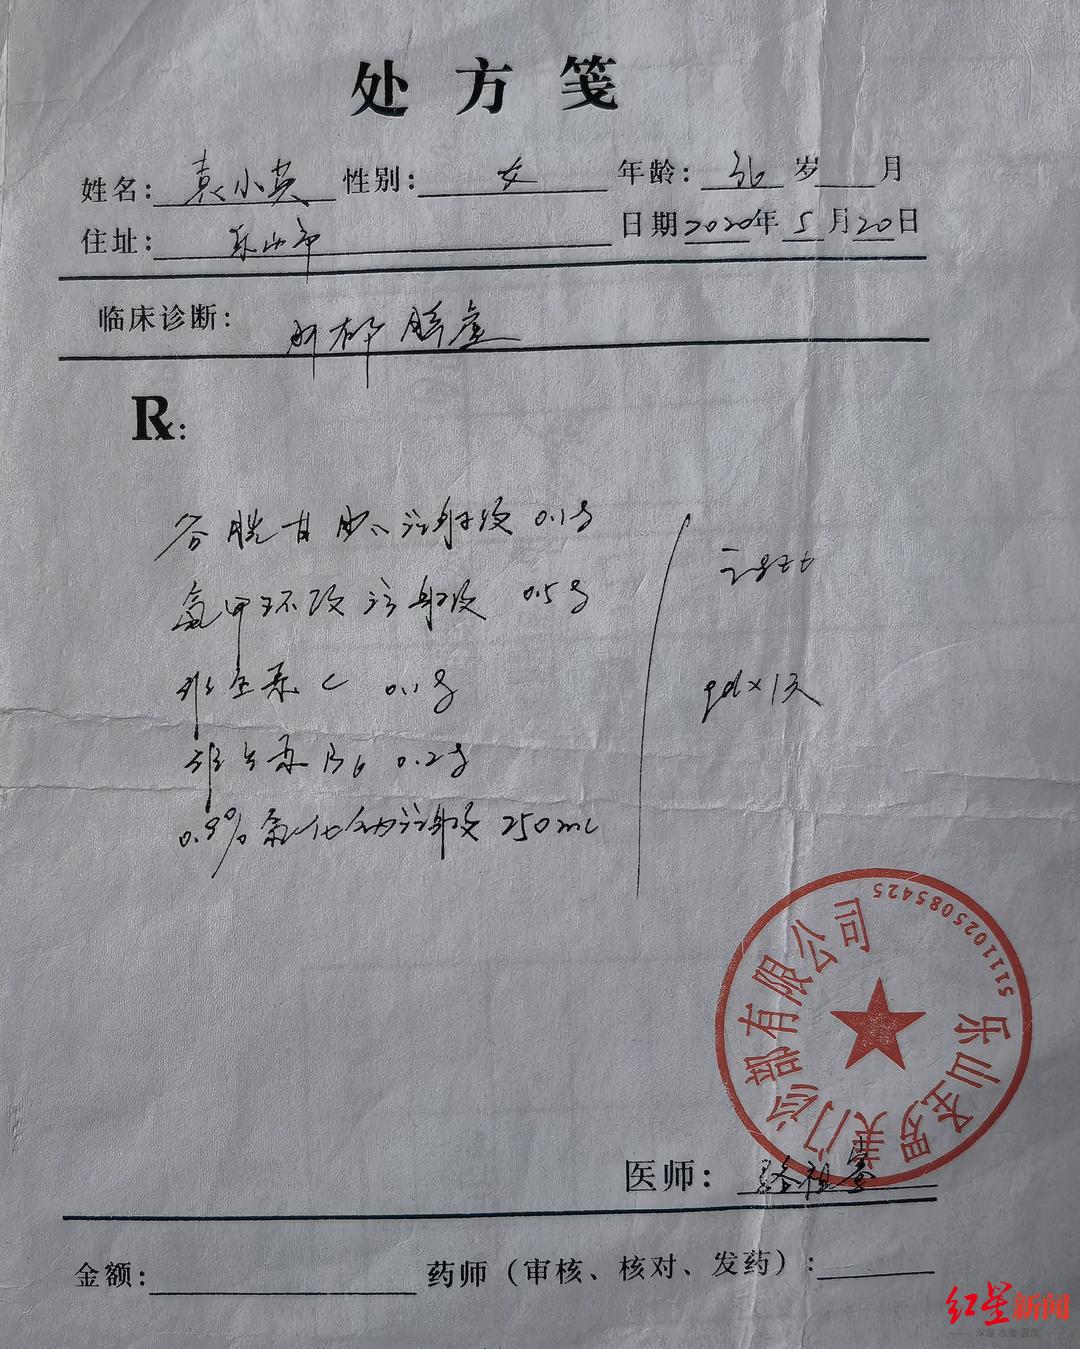 处方笺
姓名: 袁小英 性别: 女 年龄: 36 岁 月
住址: 乐山市 日期 2020年 5 月 20 日
临床诊断: 肝郁脾虚
R:
谷胱甘肽注射液 0.1g
氨甲环酸注射液 0.5g
维生素C 0.1g
维生素B6 0.2g
0.9%氯化钠注射液 250ml
qd×1天
乐山圣罗美门诊部有限公司
5111025085425
医师:
金额: 药师（审核、核对、发药）:
红星新闻
深度 态度 温度